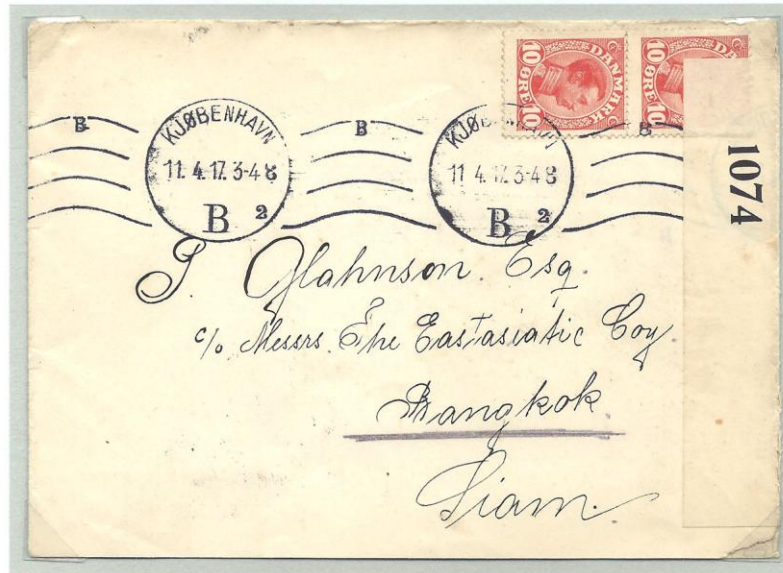 10 DANMARK 10 ØRE
10 DANMARK 10 ØRE
B KJØBENHAVN 11. 4. 17. 3-4 8 B 2
B KJØBENHAVN 11. 4. 17. 3-4 8 B 2
B
1074
P. Glahnson. Esq.
c/o Messrs. The Eastasiatic Coy
Bangkok
Siam.